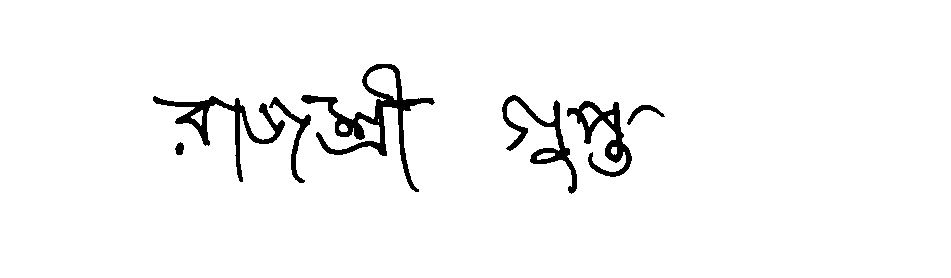 রাজশ্রী গুপ্ত